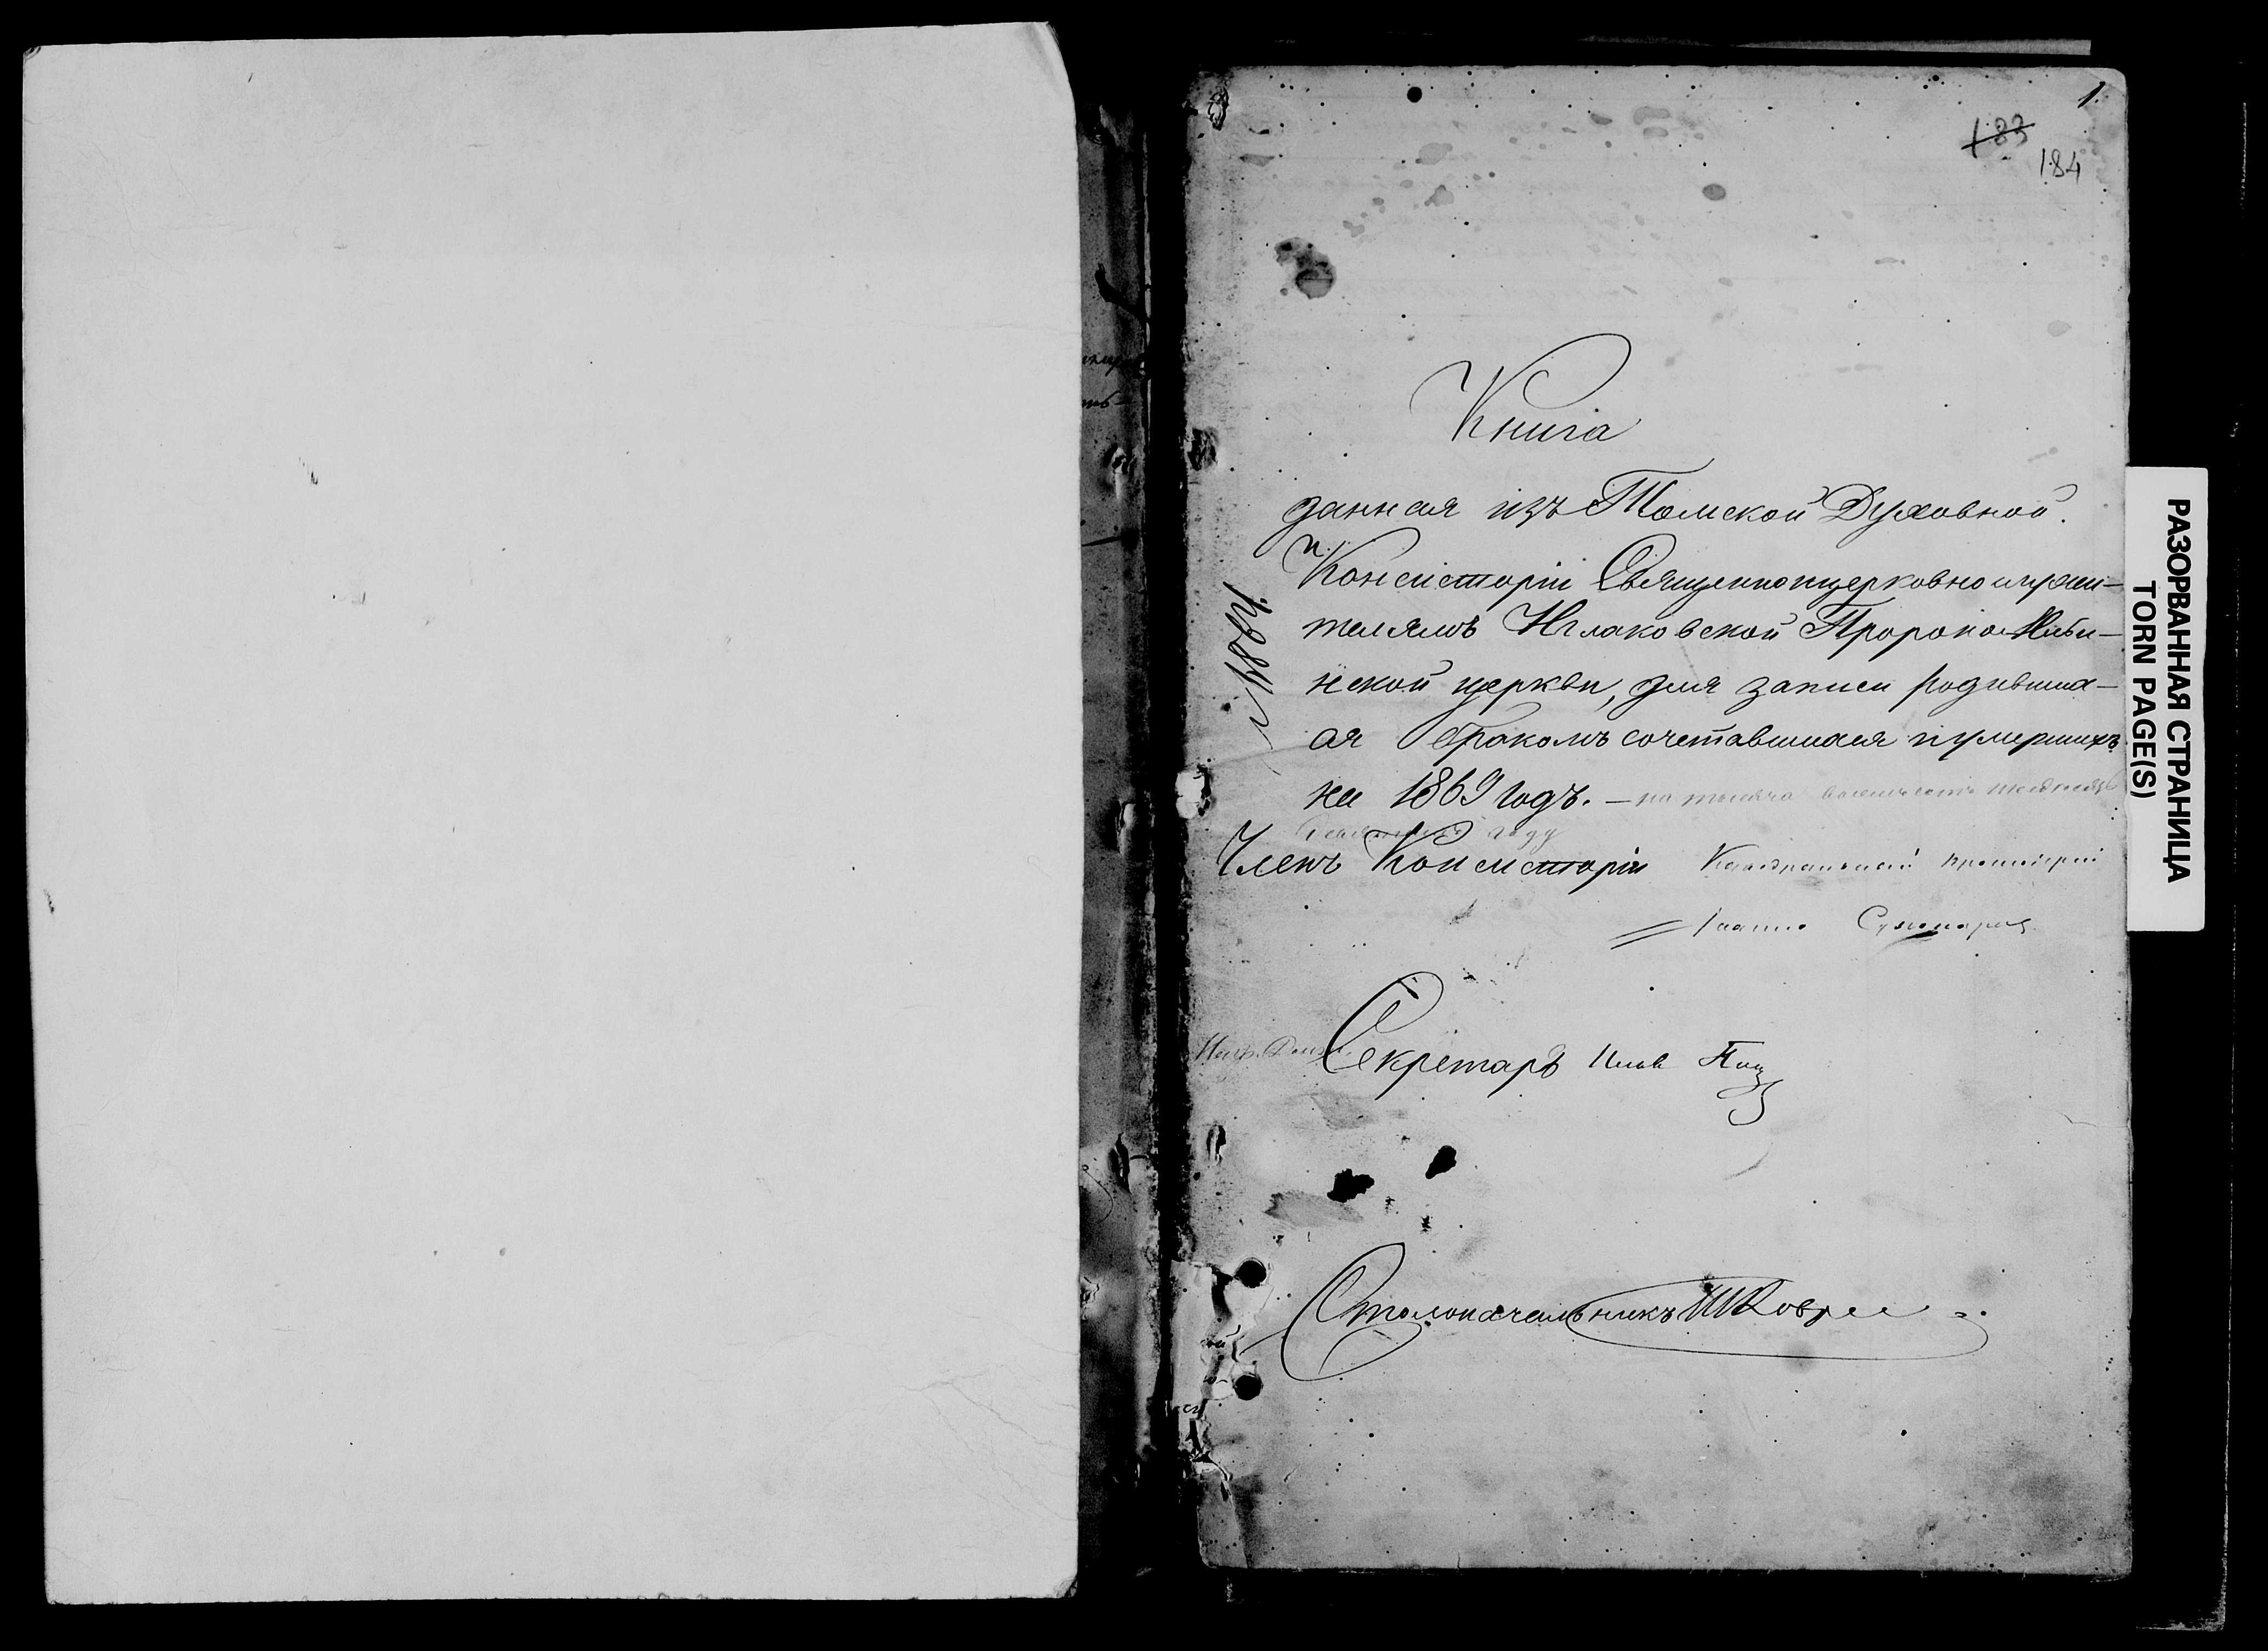 1.
183
184
Книга
данная изъ Томской Духовной
Консисторіи Священноцерковнослужи-
телямъ Иглаковской Пророко-Ильи-
нской церкви, для записи родивших-
ся бракомъ сочетавшихся и умершихъ
на 1869 годъ. — на тысяча восемьсотъ шестьдесятъ
году
Членъ Консисторіи Каѳедральный протоіерей
Іоаннъ
Секретарь
Столоначальникъ
РАЗОРВАННАЯ СТРАНИЦА
TORN PAGE(S)